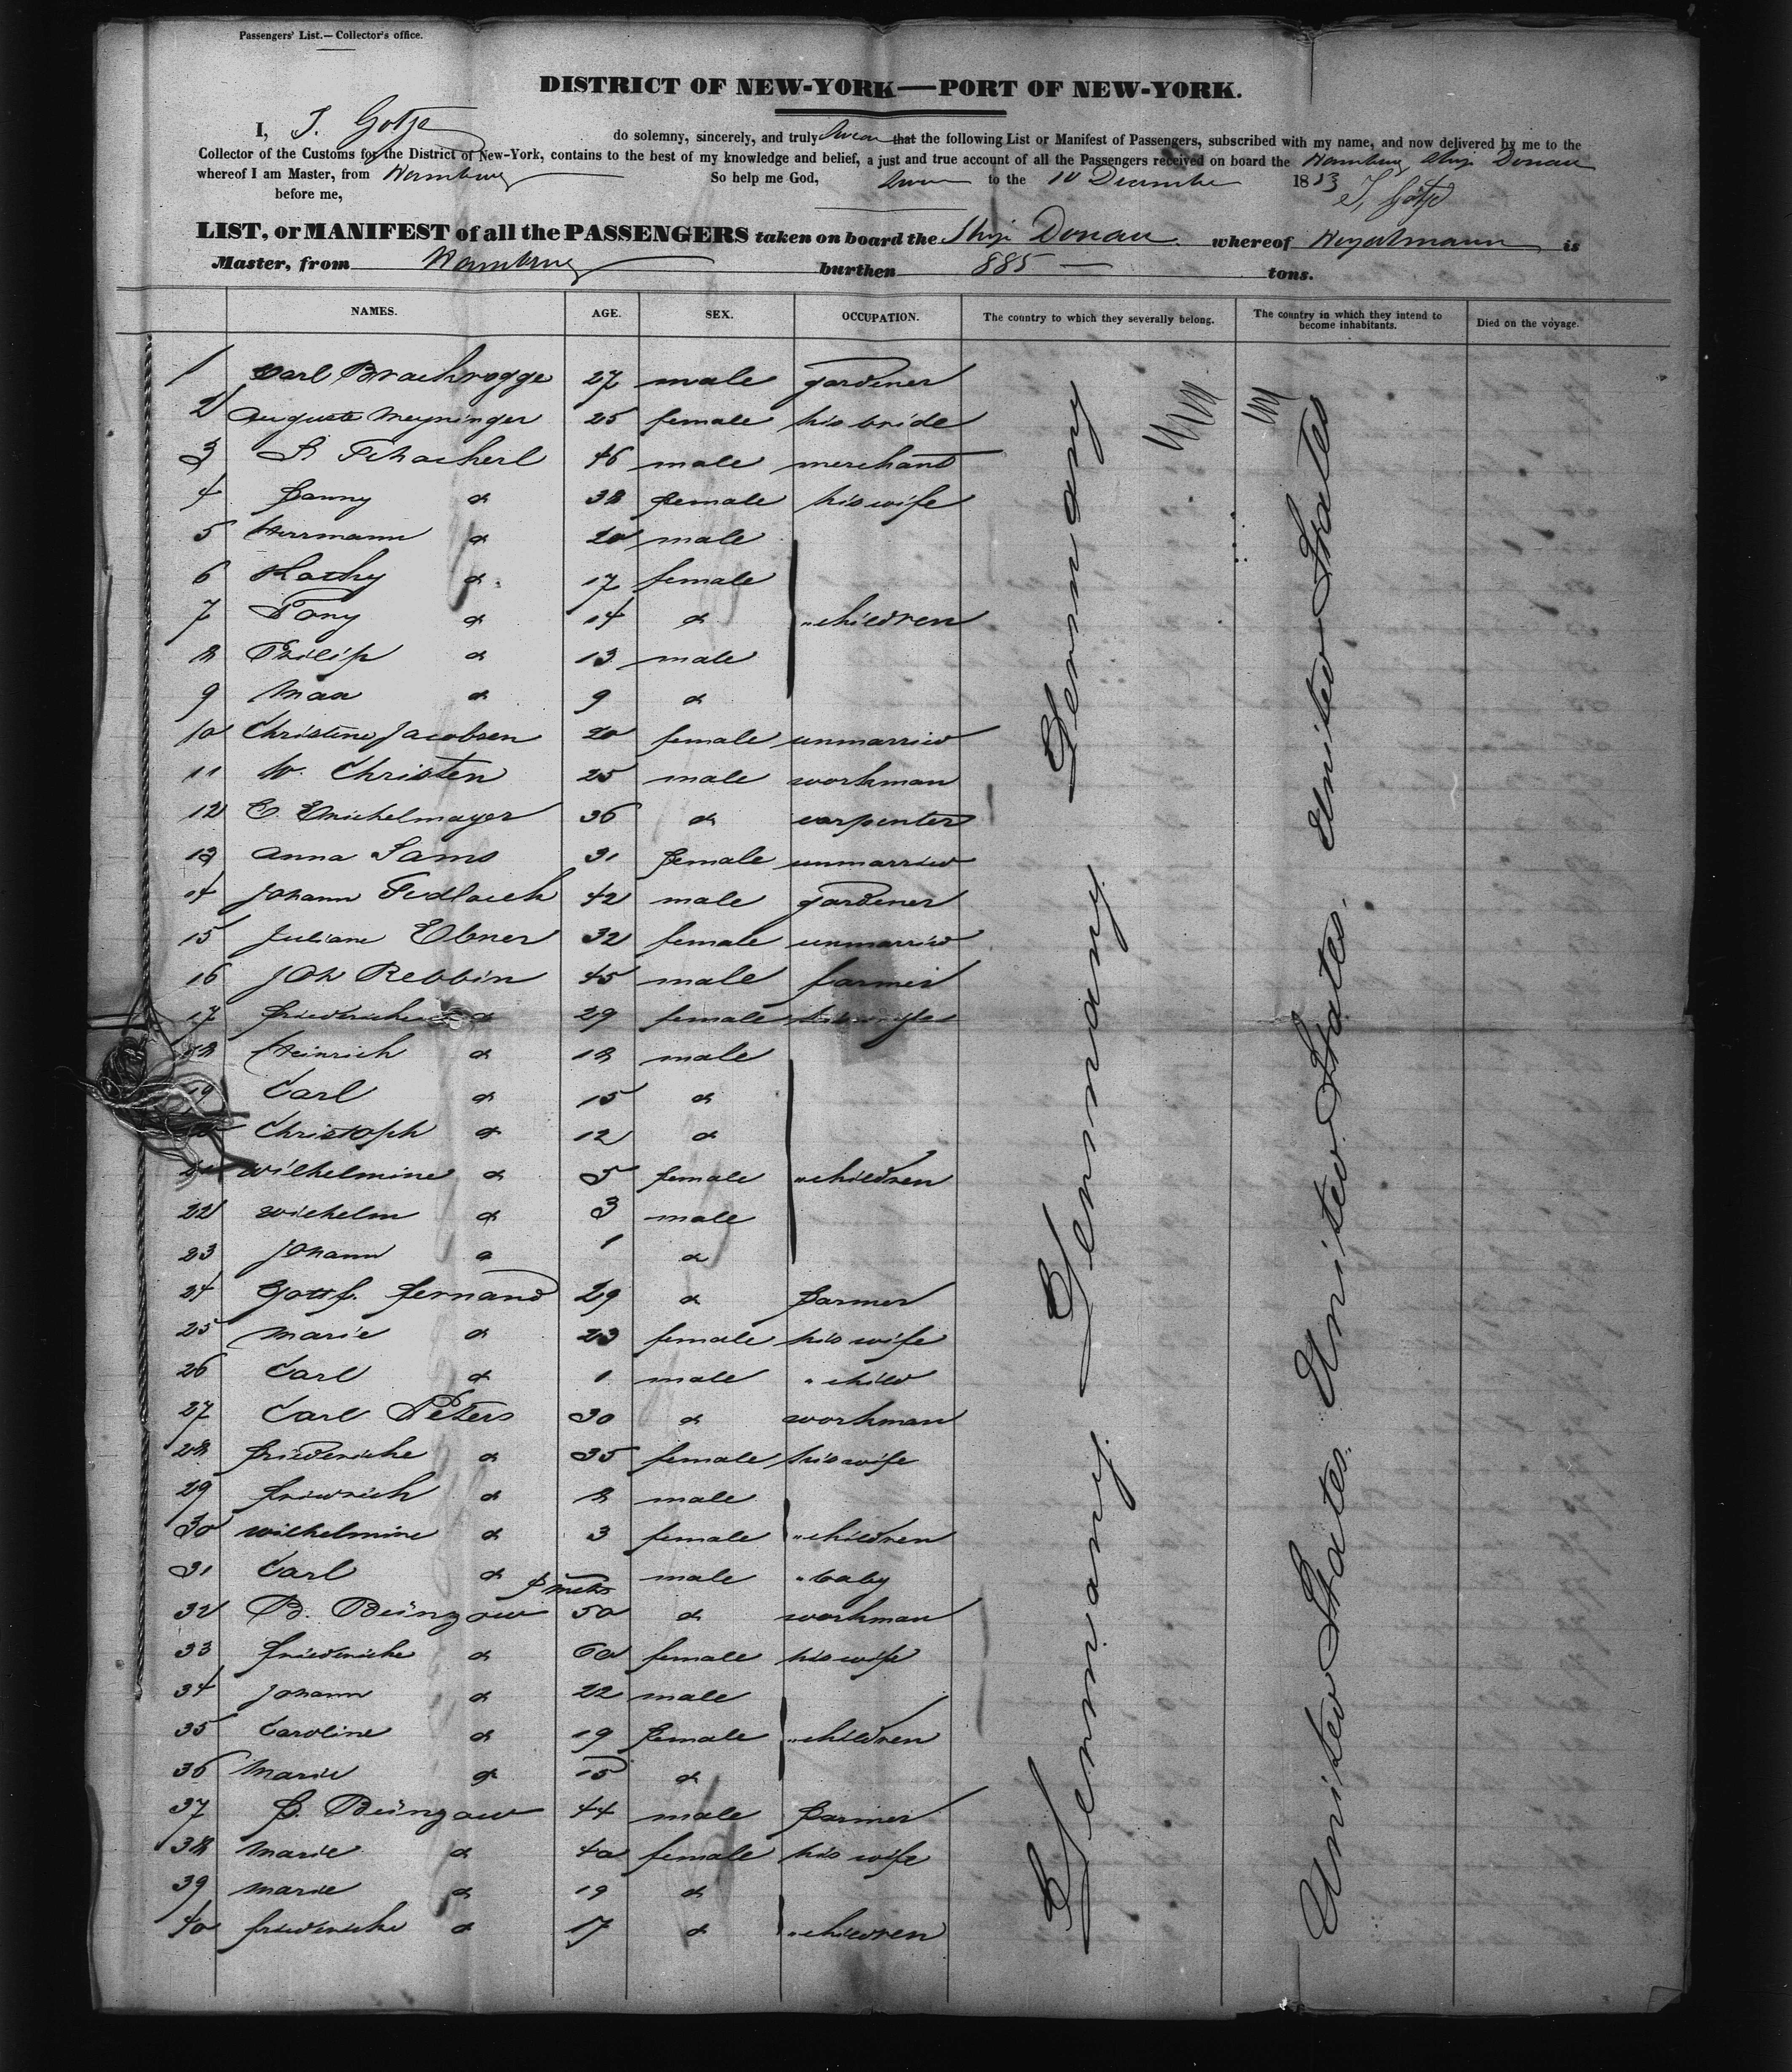 Passengers' List.—Collector's office.
DISTRICT OF NEW-YORK—PORT OF NEW-YORK.
I, J. Gotze do solemny, sincerely, and truly swear that the following List or Manifest of Passengers, subscribed with my name, and now delivered by me to the
Collector of the Customs for the District of New-York, contains to the best of my knowledge and belief, a just and true account of all the Passengers received on board the Hamburg Ship Donau
whereof I am Master, from Hamburg So help me God, to the 10 December 1853
before me, J. Gotze
LIST, or MANIFEST of all the PASSENGERS taken on board the Ship Donau whereof is
Master, from Hamburg burthen 885 — tons.
NAMES. AGE. SEX. OCCUPATION. The country to which they severally belong. The country in which they intend to become inhabitants. Died on the voyage.
1 Carl Brachrogge 27 male gardener
2 Auguste Meyninger 25 female his bride
3 S Schacherl 46 male merchant
4 Fanny do 38 female his wife
5 Herrmann do 20 male
6 Kathy do 17 female
7 Tony do 14 do " children
8 Philip do 13 male
9 Max do 9 do
10 Christine Jacobsen 20 female unmarried
11 W. Christen 25 male workman
12 E. Michelmayer 36 do carpenter
13 Anna Sams 31 female unmarried
14 Johann Sedlaceh 42 male gardener
15 Juliane Ebner 32 female unmarried
16 Joh Rebbin 45 male farmer
17 Friedericke do 29 female his wife
18 Heinrich do 18 male
19 Carl do 15 do
20 Christoph do 12 do
21 Wilhelmine do 5 female " children
22 Wilhelm do 3 male
23 Johann do 1 do
24 Gottf. Fernand 29 do farmer
25 Marie do 23 female his wife
26 Carl do 1 male " child
27 Carl Peters 30 do workman
28 Friedericke do 35 female his wife
29 Friedrich do 8 male
30 Wilhelmine do 3 female " children
31 Carl do male " baby
32 B. Büngow 50 do workman
33 Friedericke do 60 female his wife
34 Johann do 22 male
35 Caroline do 19 female " children
36 Marie do 15 do
37 F. Büngow 44 male farmer
38 Marie do 40 female his wife
39 Marie do 19 do
40 Friedericke do 17 do " children
Germany Germany Germany
United States United States United States